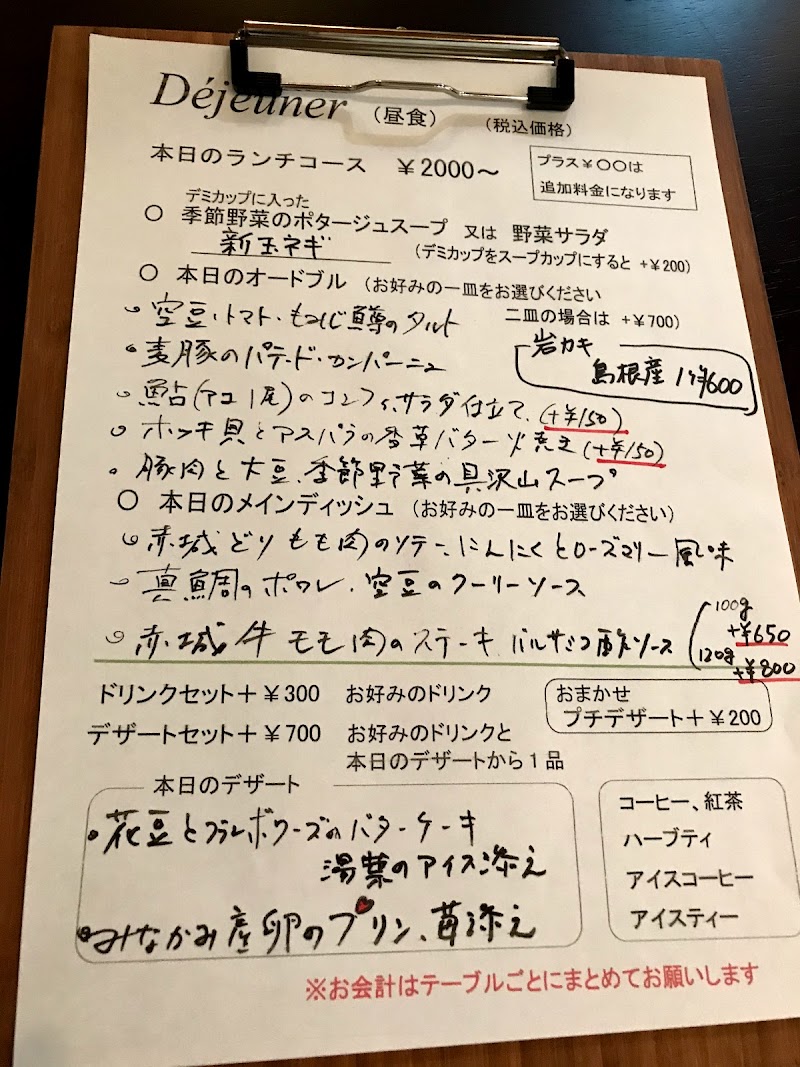 Déjeuner （昼食） （税込価格）
本日のランチコース ￥2000～
プラス￥〇〇は
追加料金になります
デミカップに入った
○ 季節野菜のポタージュスープ 又は 野菜サラダ
新玉ネギ （デミカップをスープカップにすると +￥200）
○ 本日のオードブル （お好みの一皿をお選びください
二皿の場合は +￥700）
空豆・トマト・もみじ鱒のタルト
岩カキ
島根産 1ヶ¥600
麦豚のパテ・ド・カンパーニュ
鮎(アユ1尾)のコンフィ、サラダ仕立て (+¥150)
ホッキ貝とアスパラの香草バター火焼き (+¥150)
豚肉と大豆、季節野菜の具沢山スープ
○ 本日のメインディッシュ （お好みの一皿をお選びください）
赤城どりもも肉のソテー、にんにくとローズマリー風味
真鯛のポワレ、空豆のクーリーソース
赤城牛モモ肉のステーキ バルサミコ酢ソース
100g
+¥650
120g
+¥800
ドリンクセット＋￥300 お好みのドリンク
デザートセット＋￥700 お好みのドリンクと
本日のデザートから1品
おまかせ
プチデザート＋￥200
本日のデザート
花豆とフランボワーズのバターケーキ
湯葉のアイス添え
みなかみ産卵のプリン、苺添え
コーヒー、紅茶
ハーブティ
アイスコーヒー
アイスティー
※お会計はテーブルごとにまとめてお願いします